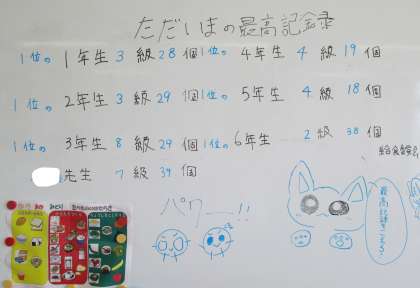 ただいまの最高記録
1位の 1年生 3級 28個 1位の 4年生 4級 19個
1位の 2年生 3級 29個 1位の 5年生 4級 18個
1位の 3年生 8級 29個 1位の 6年生 2級 38個
先生 7級 39個
パワー!!
最高記録をこえろ!